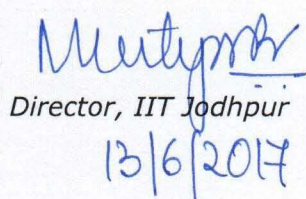 Director, IIT Jodhpur
13/6/2017